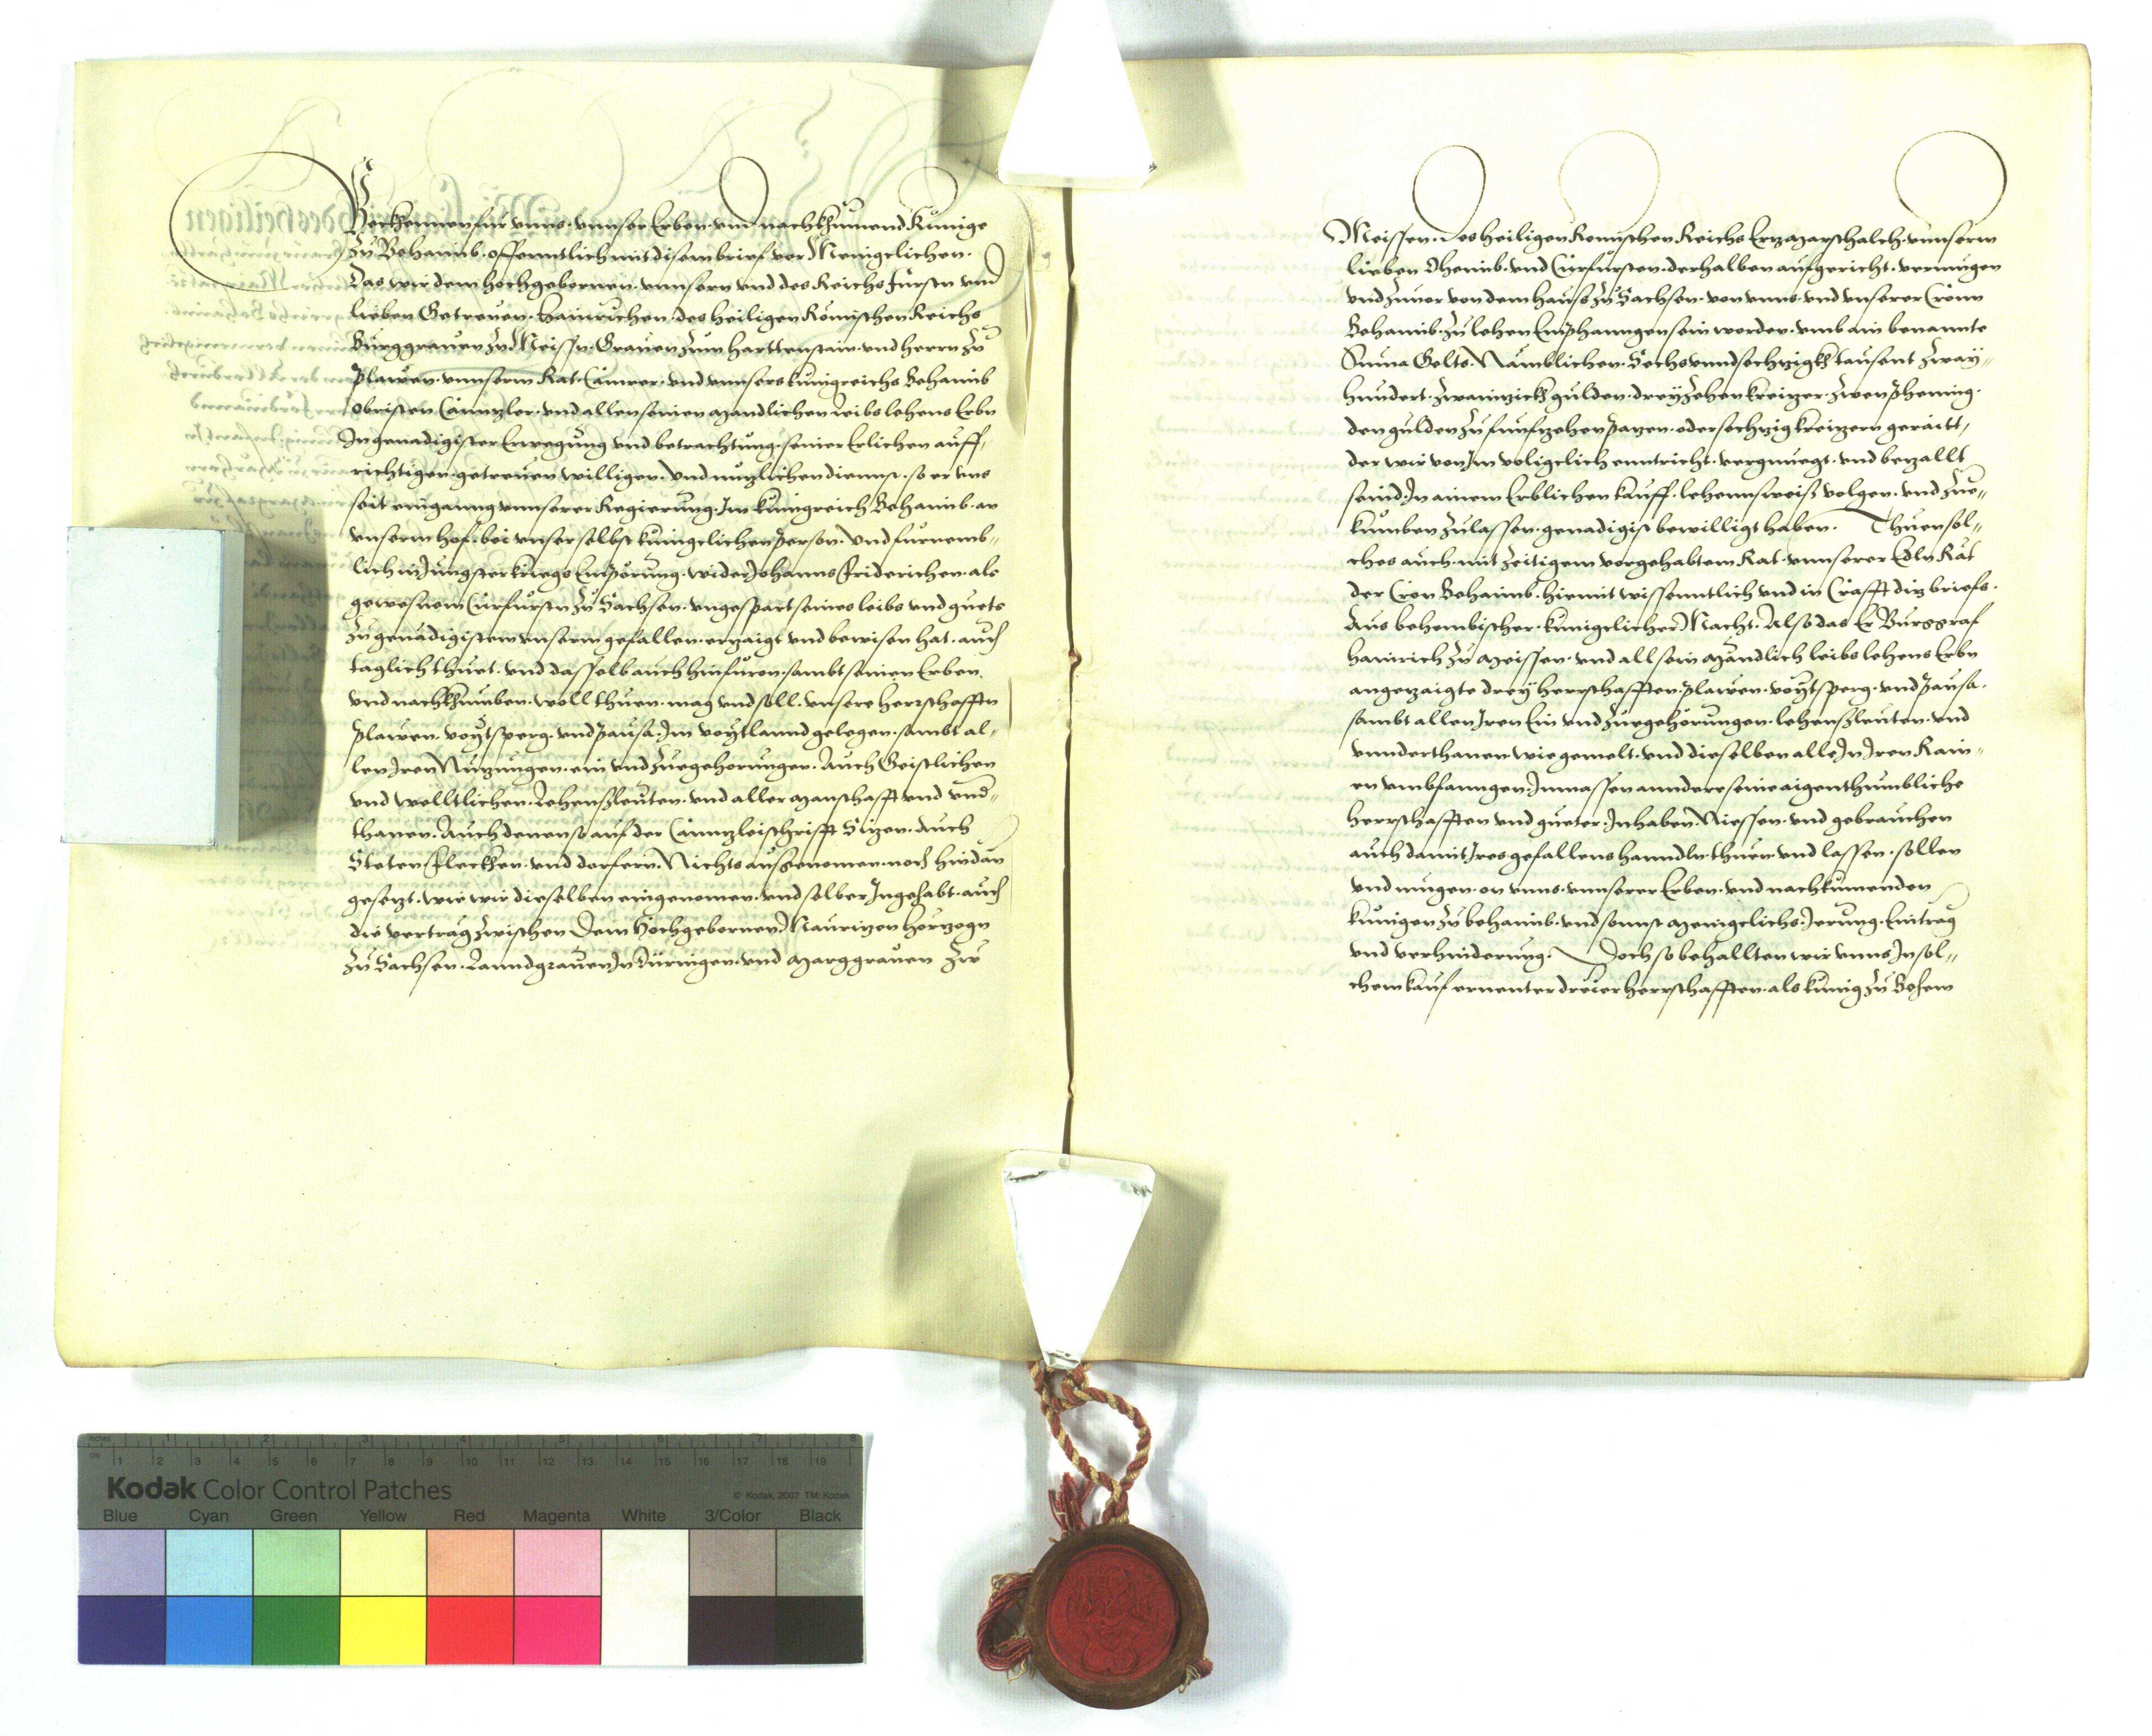 Bekhennen fur vnns. vnnser Erben. vnd nachkhumend Kunige
zu Behaimb. offenntlich mit disem brief vor Menigclichen.
Das wir dem hochgebornen. vnnsern vnd des Reichs fürsten vnd
lieben Getreuen. Hainrichen. des heiligen Römischen Reichs
Burggrauen zu Meissn. Grauen zum Harttenstain. vnd herrn zu
Plawen. vnnserm Rat. Camrer. vnd vnnsers kunigreichs Behaimb
Obristen Canntzler. vnd allen seinen mandlichen leibs lehens Erbn
In genadigister Erwegung vnd betrachtung. seiner Erlichen auff,
richtigen. getreuen willigen. vnd nutzlichen diennst. so er vns
seit einganng vnnserer Regierung. Im kunigreich Behaimb. an
vnserm hof. bei vnser selbst kunigclichen person. vnd furnemb,,
lich in Jungster kriegs Empörung. wider Johanns Friderichen. als
gewesnem Curfürstn zu Sachsen. vngespart seines leibs vnd guets
zu genadigistem vnserm gefallen. ertzaigt vnd bewisen hat. auch
taglich thuet. vnd dasselb auch hinfüron. sambt seinen Erben.
vnd nachkhumben. woll thuen. mag vnd soll. vnsere herrschafftn
Plawen. Voytsperg. vnd Pausa. Im Voytlannd gelegen. sambt al,,
len Iren Nutzungen. ein vnd zuegehorungen. Auch Geistlichen
vnd welltlichen. Lehensleuten. vnd aller manschafft vnd vnd,,
thanen. Auch denen so auf der Canntzleischrifft Sitzen. Auch
Steten Fleckhen. vnd dorfern. Nichts ausgenomen. noch hindan
gesetzt. wie wir dieselben eingenomen. vnd selber Ingehabt. auch
die vertrag zwischen Dem Hochgebornen Mauritzen hertzogn
zu Sachsen. Lanndgrauen In Düringen. vnd Marggrauen zu
Meissen. Des heiligen Romischen Reichs Ertzmarschalch. vnnserm
lieben Ohemib. vnd Curfürsten. derhalben aufgericht. vermugen
vnd zuuor von dem hauss zu Sachsen. von vnns. vnd vnserer Cronn
Behaimb. zu lehen Emphanngen sein worden. vmb ain benannte
Suma Gelts. Namblichen. Sechsvnndsechtzigkh tausent zway,,
hundert. zwaintzickh gulden. dreyzehen kreitzer. zwen phening.
den gulden zu funfzehen patzen. oder sechtzig kreitzern geraitt,
der wir von Im voligclich enntricht. vergnuegt. vnd betzallt
seind. In ainem Erblichen kauff. lehennsweiss volgen. vnd zue,,
kumben zulassen. genadigist bewilligt haben. Thuen sol,,
ches auch. mit zeitigem vorgehabtem Rat. vnnserer Edln Rät
der Cron Behaimb. hiemit wissenntlich vnd in Crafft ditz briefs.
Aus behembischer. kunigclicher Macht. Also das Er Burggraf
hainrich zu meissen. vnd all sein mandlich leibs lehens Erbn
angetzaigte drey herrschafften. Plawen. Voytsperg. vnd Pausa.
sambt allen Iren Ein vnd zuegehörungen. lehenssleuten. vnd
vnnderthanen wie gemelt. vnd dieselben alle In Iren Rain,,
en vmbfanngen. Inmassen anndere seine aigenthumbliche
herrschafften vnd gueter. Inhaben. Niessen. vnd gebrauchen
auch damit Ires gefallens hanndln. thuen. vnd lassen. sollen
vnd mugen. on vnns. vnnserer Erben. vnd nachkumenden
kunigen zu behaimb. vnd sonnst menigclichs. Jrrung. Eintrag
vnd verhinderung. Doch so behallten wir vnns In sol,,
chem kauf ernenter dreier herrschafften. als kunig zu Behem
inches
cm
1 2 3 4 5 6 7 8 9 10 11 12 13 14 15 16 17 18 19
Kodak Color Control Patches
© Kodak, 2007 TM: Kodak
Blue Cyan Green Yellow Red Magenta White 3/Color Black